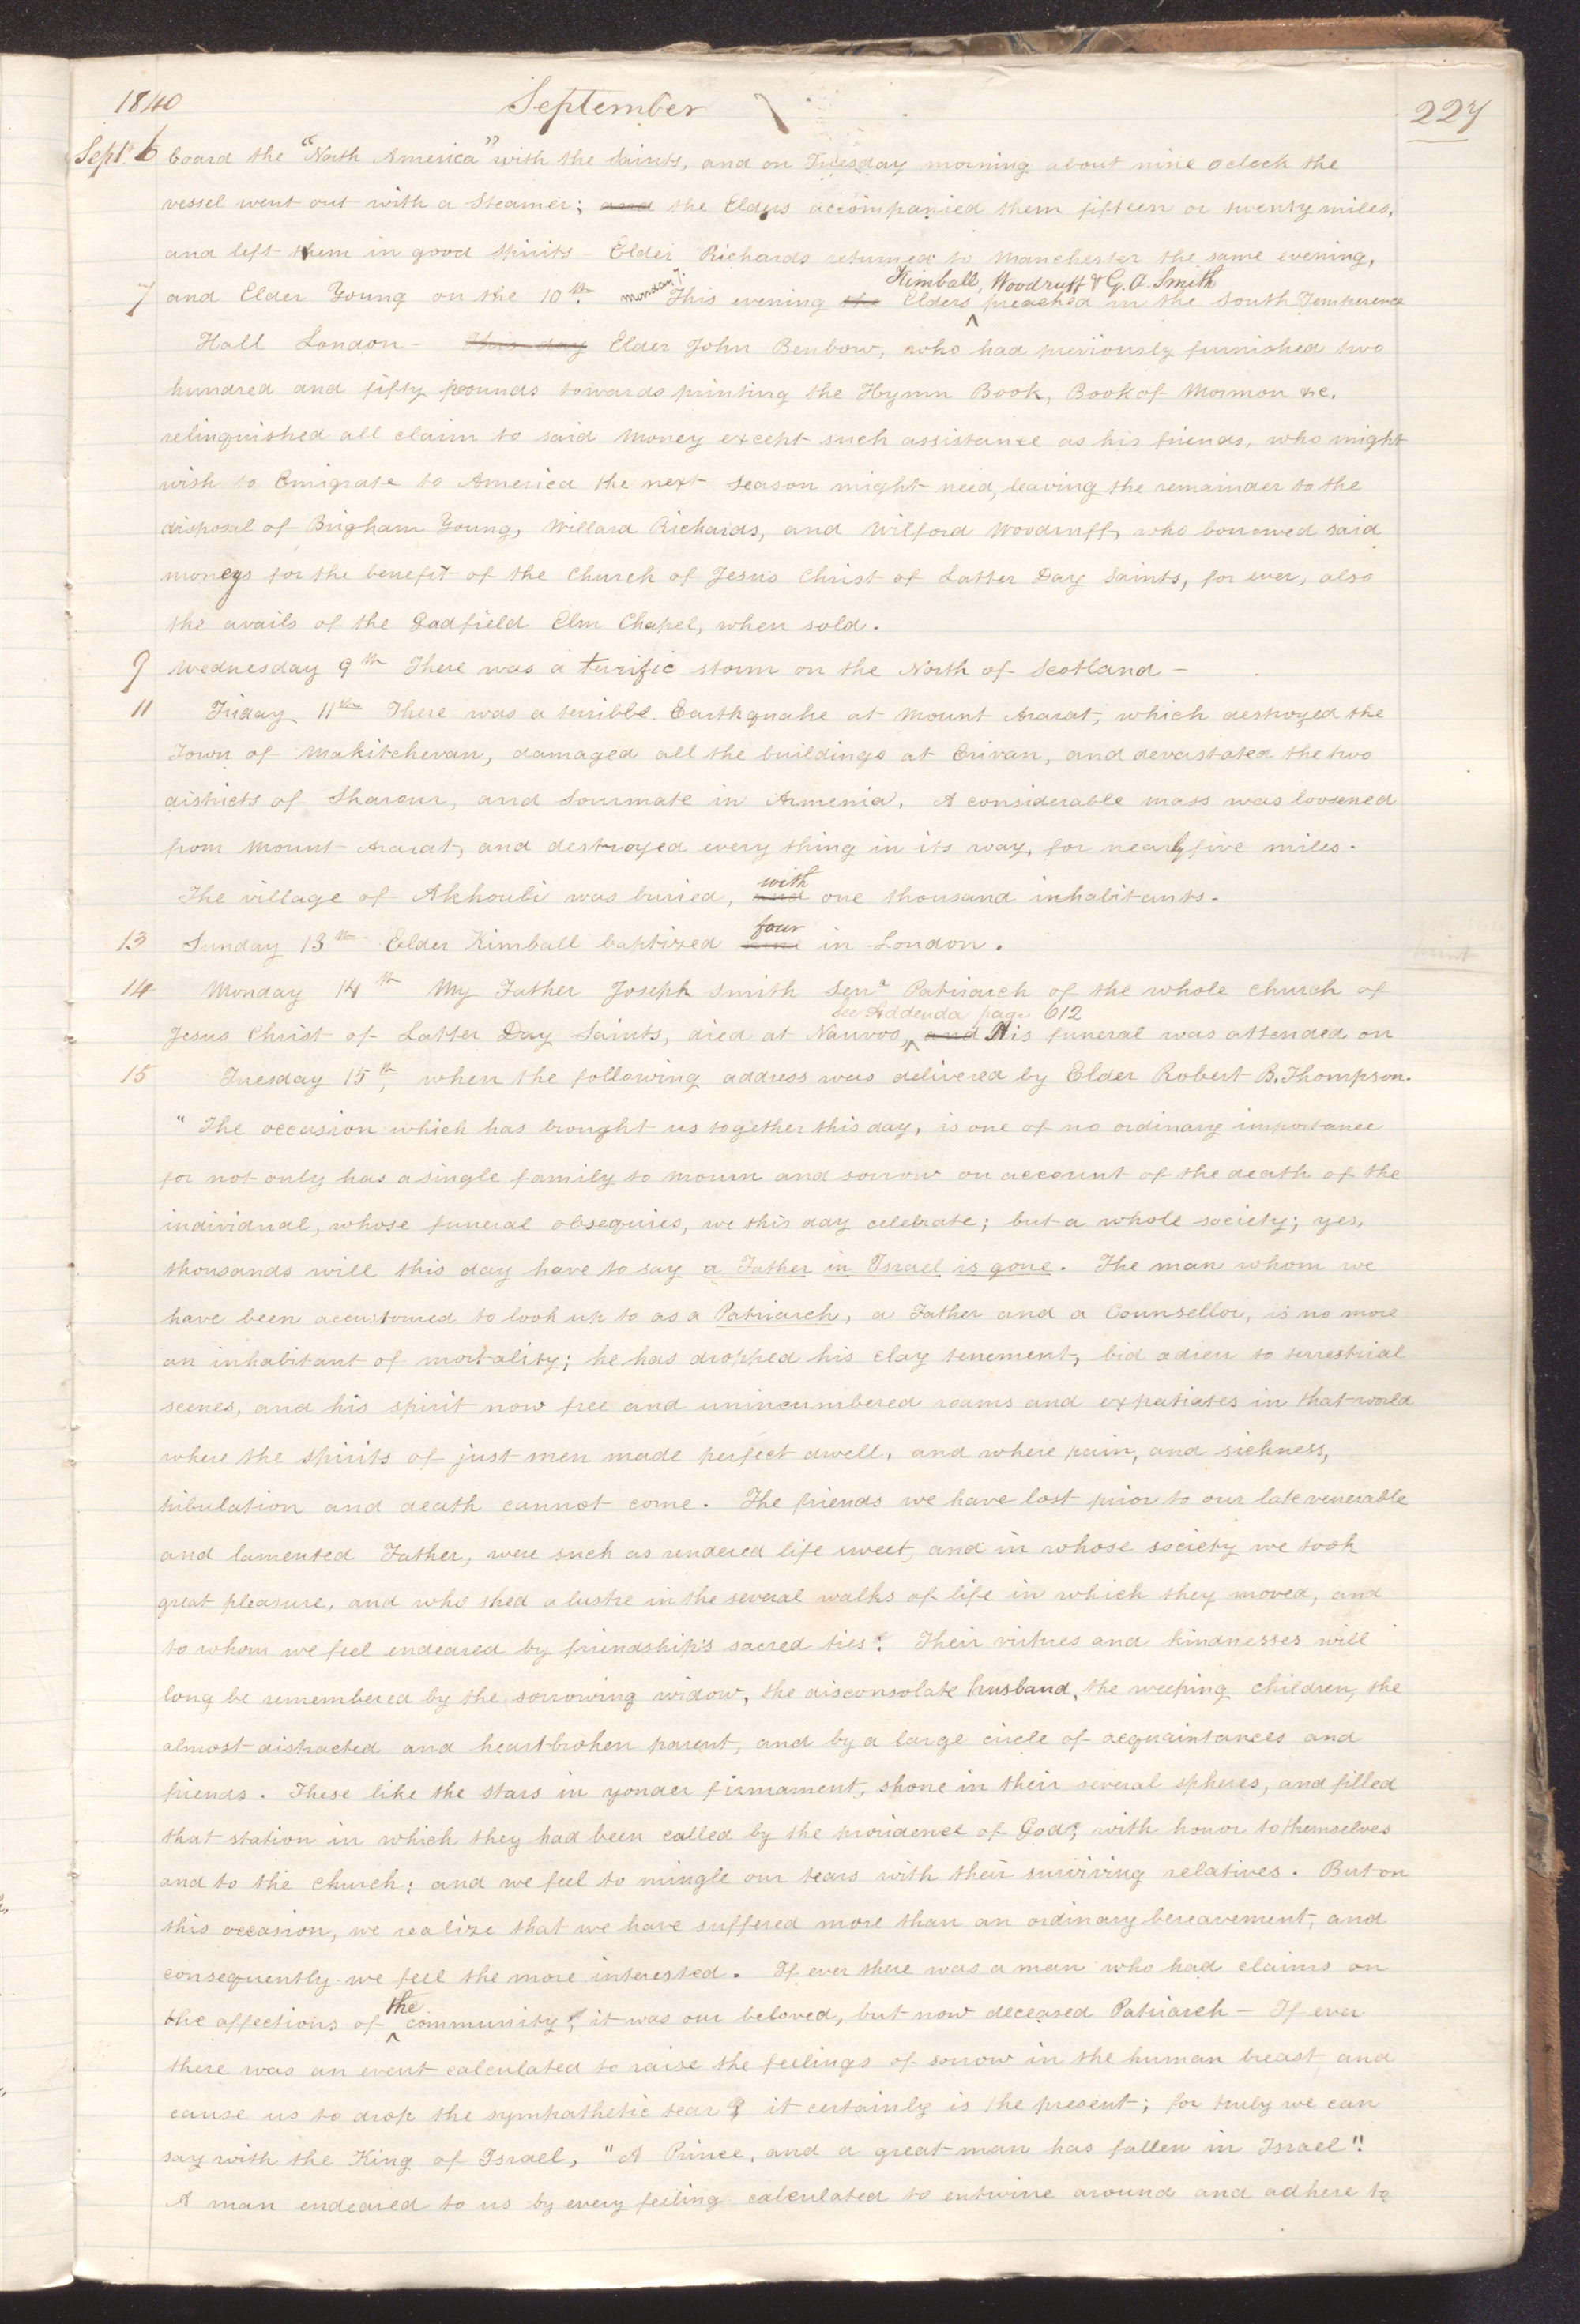 1840 September 227
Sept. 6 board the "North America" with the Saints, and on Tuesday morning about nine oclock the
vessel went out with a Steamer; and the Elders accompanied them fifteen or twenty miles,
and left them in good spirits - Elder Richards returned to Manchester the same evening,
Kimball, Woodruff & G. A. Smith
7 and Elder Young on the 10th. monday 7. This evening the Elders ^ preached in the South Temperence
Hall London - This day Elder John Benbow, who had previously furnished two
hundred and fifty pounds towards printing the Hymn Book, Book of Mormon &c.
relinquished all claim to said Money except such assistance as his friends, who might
wish to Emigrate to America the next Season might need, leaving the remainder to the
disposal of Brigham Young, Willard Richards, and Wilford Woodruff, who borrowed said
moneys for the benefit of the Church of Jesus Christ of Latter Day Saints, for ever, also
the avails of the Gadfield Elm Chapel, when sold.
9 Wednesday 9th There was a terrific storm on the North of Scotland -
11 Friday 11th There was a terrible Earthquake at Mount Ararat, which destroyed the
Town of Makitchevan, damaged all the buildings at Erivan, and devastated the two
districts of Sharour, and Sourmate in Armenia. A considerable mass was loosened
from Mount Ararat, and destroyed every thing in its way, for nearly five miles.
with
The village of Akhouli was buried, and one thousand inhabitants.
four
13 Sunday 13th Elder Kimball baptized in London.
14 Monday 14th My Father Joseph Smith Senr. Patriarch of the whole church of
See Addenda page 612
Jesus Christ of Latter Day Saints, died at Nauvoo, ^ and His funeral was attended on
15 Tuesday 15th, when the following address was delivered by Elder Robert B. Thompson.
"The occasion which has brought us together this day, is one of no ordinary importance
for not only has a single family to mourn and sorrow on account of the death of the
individual, whose funeral obsequies, we this day celebrate; but a whole society; yes,
thousands will this day have to say a Father in Israel is gone. The man whom we
have been accustomed to look up to as a Patriarch, a Father and a Counsellor, is no more
an inhabitant of mortality; he has dropped his clay tenement, bid adieu to terrestrial
scenes, and his spirit now free and unincumbered roams and expatiates in that world
where the spirits of just men made perfect dwell, and where pain, and sickness,
tribulation and death cannot come. The friends we have lost prior to our late venerable
and lamented Father, were such as rendered life sweet, and in whose society we took
great pleasure, and who shed a lustre in the several walks of life in which they moved, and
to whom we feel endeared by friendship's sacred ties. Their virtues and kindnesses will
long be remembered by the sorrowing widow, the disconsolate husband, the weeping children, the
almost distracted and heart-broken parent, and by a large circle of acquaintances and
friends. These like the stars in yonder firmament, shone in their several spheres, and filled
that station in which they had been called by the providence of God, with honor to themselves
and to the church; and we feel to mingle our tears with their surviving relatives. But on
this occasion, we realize that we have suffered more than an ordinary bereavement, and
consequently we feel the more interested. If ever there was a man who had claims on
the
the affections of ^ community, it was our beloved, but now deceased Patriarch - If ever
there was an event calculated to raise the feelings of sorrow in the human breast and
cause us to drop the sympathetic tear, it certainly is the present; for truly we can
say with the King of Israel, "A Prince, and a great man has fallen in Israel".
A man endeared to us by every feeling calculated to entwine around and adhere to